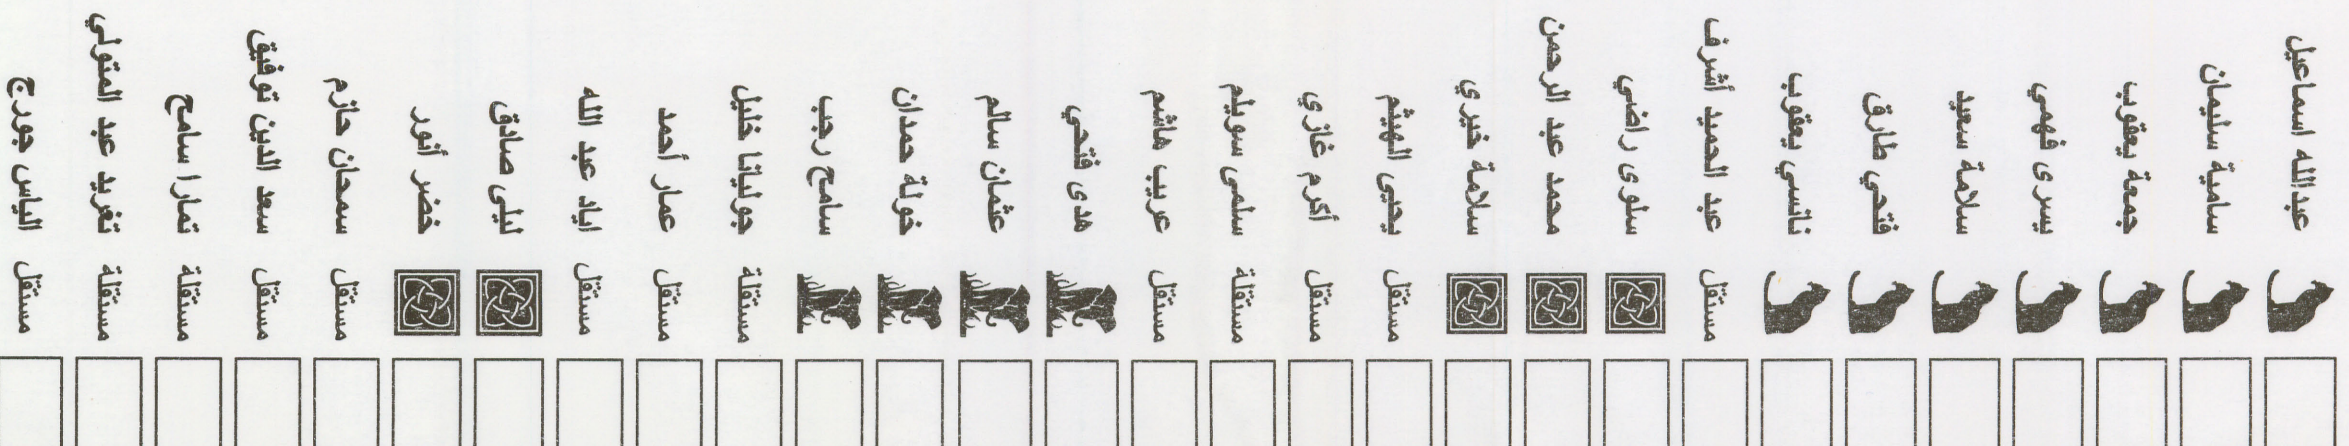 عبدالله اسماعيل
سامية سليمان
جمعة يعقوب
يسرى فهمي
سلامة سعيد
فتحي طارق
نانسي يعقوب
مستقل عبد الحميد أشرف
سلوى راضي
محمد عبد الرحمن
سلامة خيري
مستقل يحيى الهيثم
مستقل أكرم غازي
مستقلة سلمى سويلم
مستقل عريب هاشم
هدى فتحي
عثمان سالم
خولة حمدان
سامح رجب
مستقلة جوليانا خليل
مستقل عمار أحمد
مستقل اياد عبد الله
ليلى صادق
خضر أنور
مستقل سمحان حازم
مستقل سعد الدين توفيق
مستقلة تمارا سامح
مستقلة تغريد عبد المتولي
مستقل الياس جورج